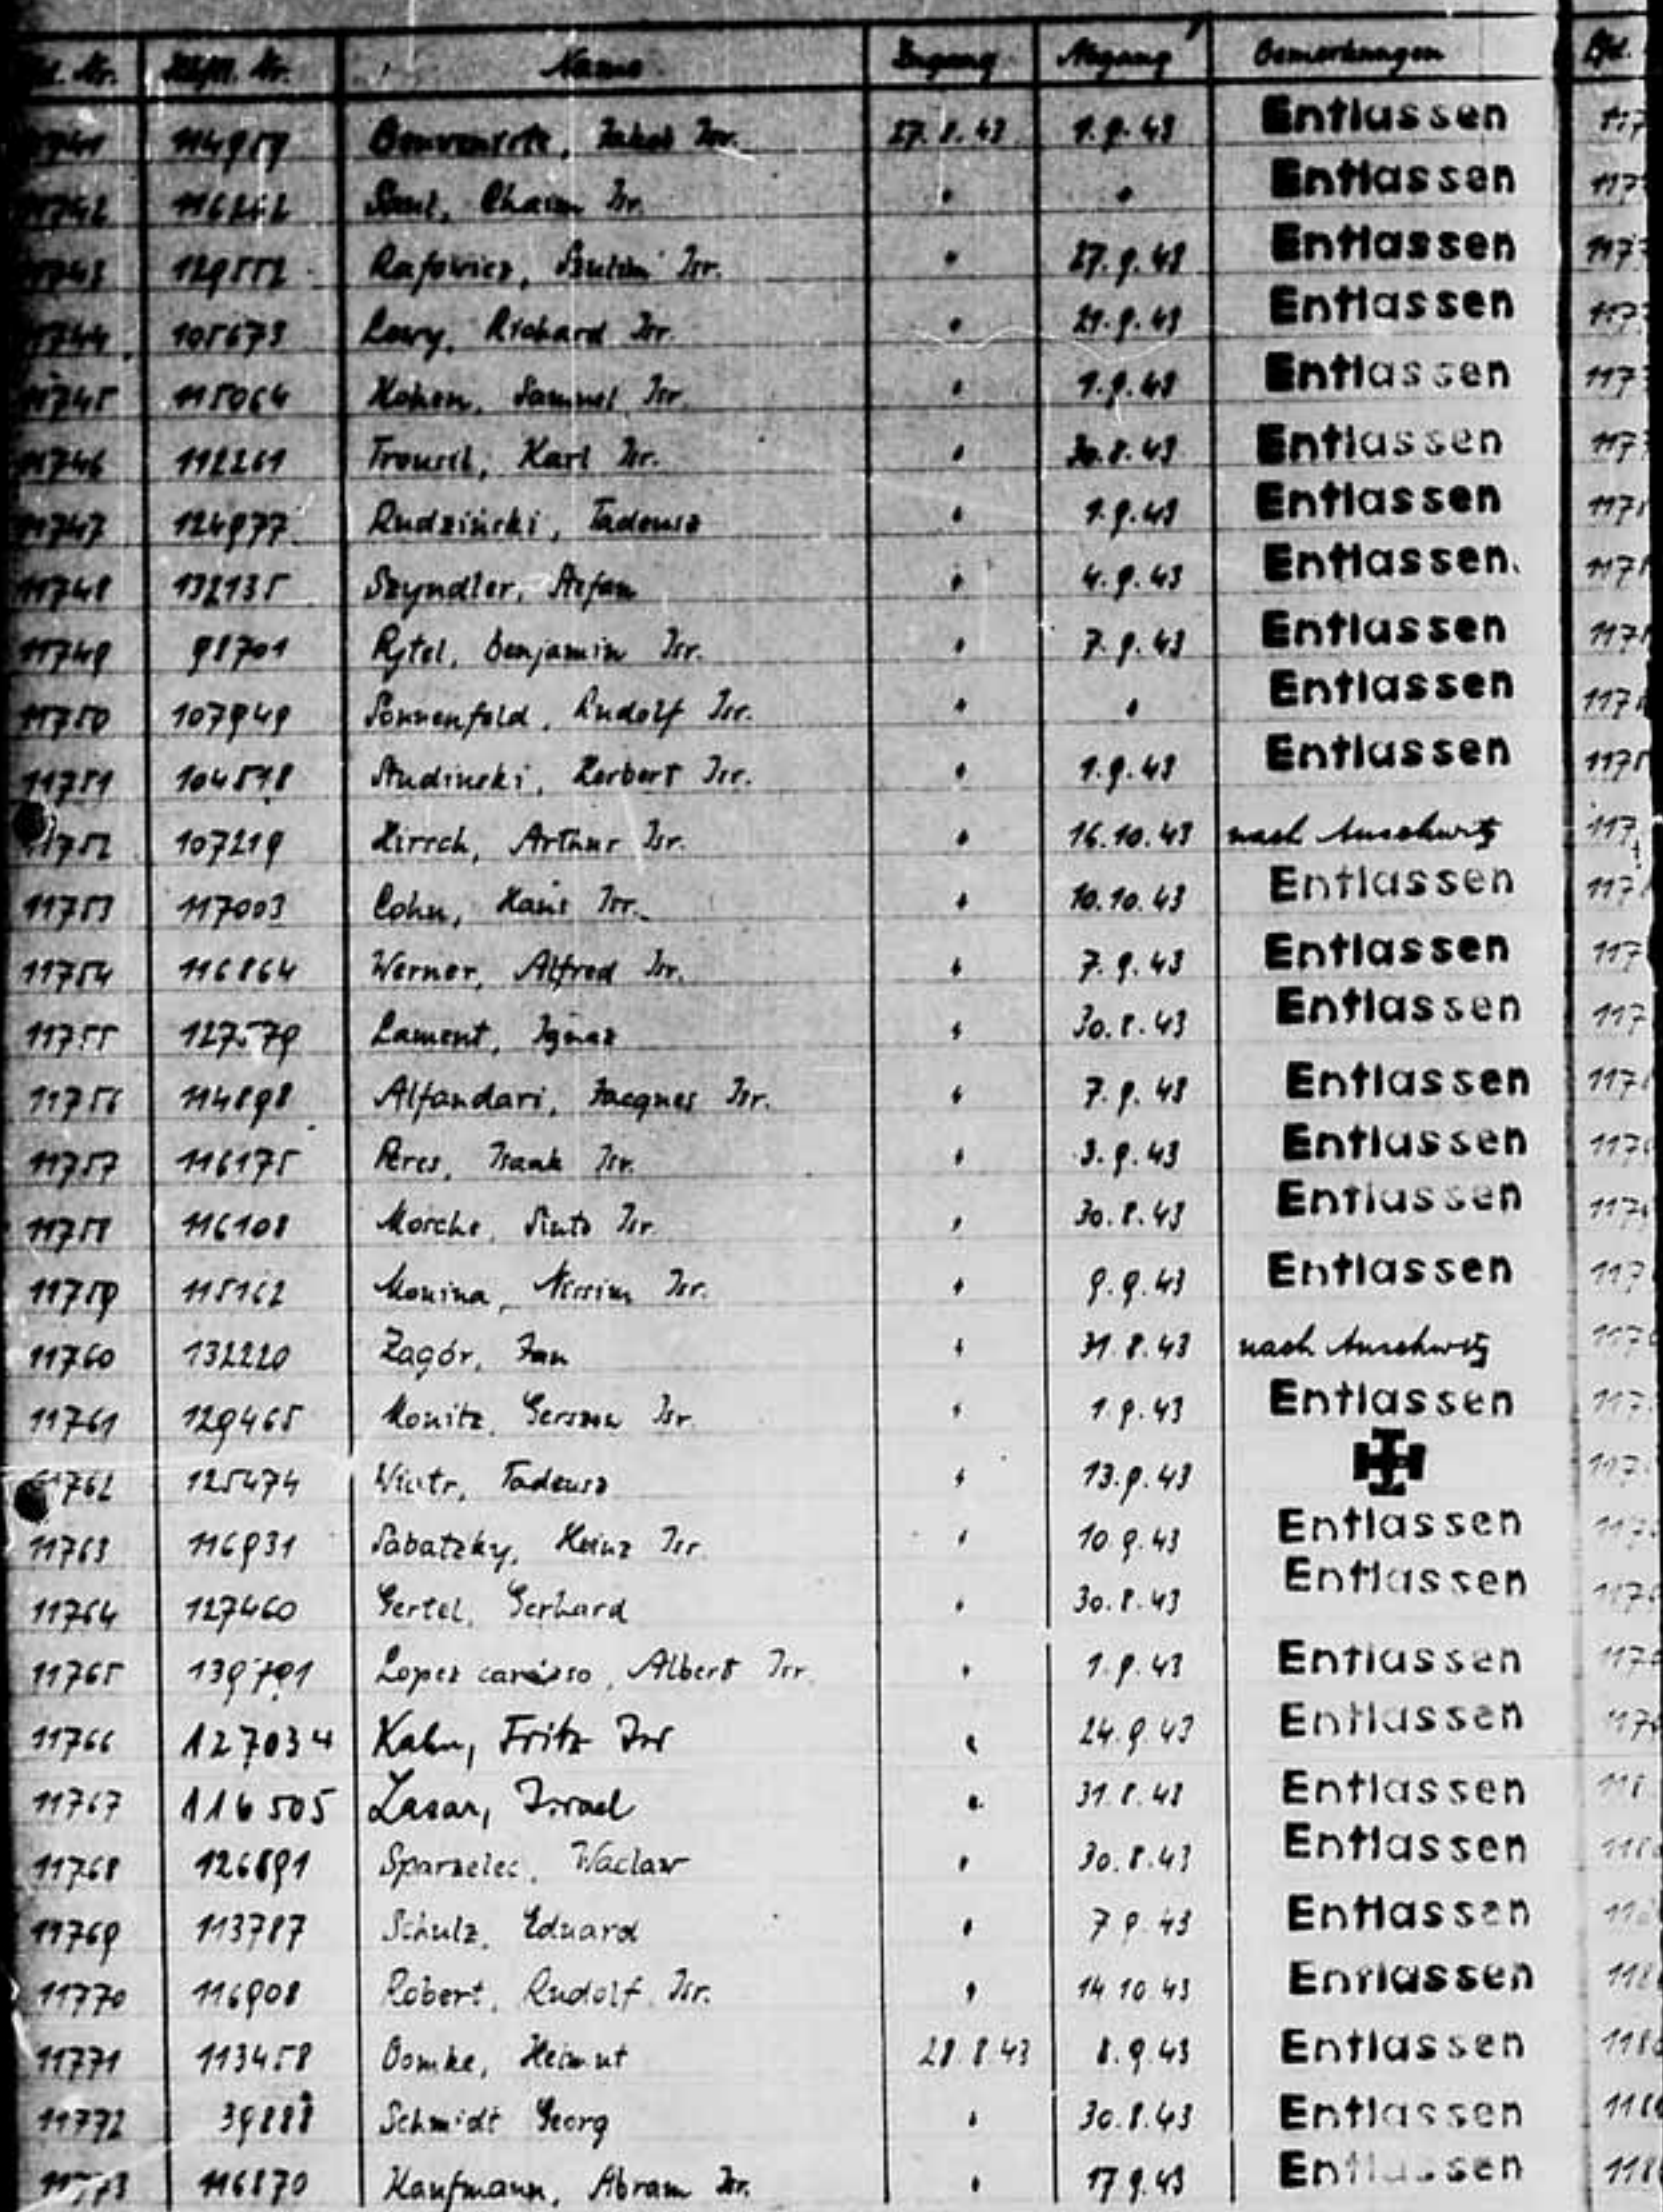 Lfd. Nr. Häftl. Nr. Name Zugang Abgang Bemerkungen Lfd.
11741 114959 Benveniste, Jakob Isr. 27.8.43 1.9.43 Entlassen
11742 116242 Saul, Chaim Isr. " " Entlassen
11743 129552 Rafowicz, Isr. " 27.9.43 Entlassen
11744 105673 Lewy, Richard Isr. " 21.9.43 Entlassen
11745 115064 Kohen, Samuel Isr. " 1.9.43 Entlassen
11746 112261 Trousil, Karl Isr. " 30.8.43 Entlassen
11747 124977 Rudziński, Tadeusz " 1.9.43 Entlassen
11748 132135 Szyndler, Stefan " 4.9.43 Entlassen
11749 98701 Rytel, Benjamin Isr. " 7.9.43 Entlassen
11750 107949 Sonnenfeld, Rudolf Isr. " " Entlassen
11751 104518 Studinski, Herbert Isr. " 1.9.43 Entlassen
11752 107219 Hirsch, Arthur Isr. " 16.10.43 nach Auschwitz
11753 117003 Cohn, Hans Isr. " 10.10.43 Entlassen
11754 116864 Werner, Alfred Isr. " 7.9.43 Entlassen
11755 127579 Lament, Ignaz " 30.8.43 Entlassen
11756 114898 Alfandari, Jacques Isr. " 7.9.43 Entlassen
11757 116175 Peres, Isaak Isr. " 3.9.43 Entlassen
11758 116108 Morche, Pinto Isr. " 30.8.43 Entlassen
11759 115162 Monina, Nissim Isr. " 9.9.43 Entlassen
11760 132220 Zagór, Jan " 31.8.43 nach Auschwitz
11761 129465 Monitz, Gerszon Isr. " 1.9.43 Entlassen
11762 125474 Wiatr, Tadeusz " 13.9.43
11763 116931 Sabatzky, Heinz Isr. " 10.9.43 Entlassen
11764 127460 Gertel, Gerhard " 30.8.43 Entlassen
11765 139791 Lopes carasso, Albert Isr. " 1.9.43 Entlassen
11766 127034 Kahn, Fritz Isr " 24.9.43 Entlassen
11767 116505 Lasar, Israel " 31.8.43 Entlassen
11768 126891 Sparzelec, Waclaw " 30.8.43 Entlassen
11769 113787 Schulz, Eduard " 7.9.43 Entlassen
11770 116908 Robert, Rudolf Isr. " 14.10.43 Entlassen
11771 113458 Domke, Helmut 28.8.43 8.9.43 Entlassen
11772 39888 Schmidt Georg " 30.8.43 Entlassen
11773 116870 Kaufmann, Abram Isr. " 17.9.43 Entlassen